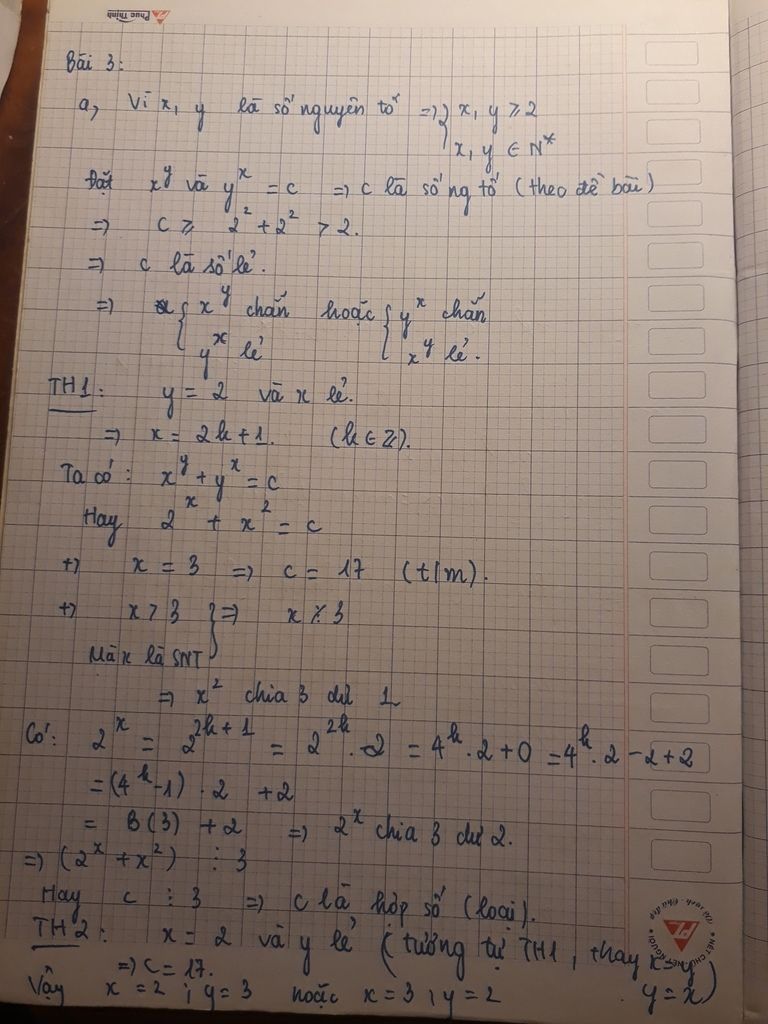 Phúc Thịnh
Bài 3:
a, Vì x, y là số nguyên tố => { x, y ≥ 2
x, y ∈ N*
Đặt x^y và y^x = c => c là số ng tố (theo đề bài)
=> c ≥ 2^2 + 2^2 > 2.
=> c là số lẻ.
=> { x^y chẵn hoặc { y^x chẵn
y^x lẻ x^y lẻ.
TH1: y = 2 và x lẻ.
=> x = 2k+1. (k ∈ Z).
Ta có: x^y + y^x = c
Hay 2^x + x^2 = c
+) x = 3 => c = 17 (t/m).
+) x > 3 } => x ⋮̸ 3
Mà x là SNT
=> x^2 chia 3 dư 1
Có: 2^x = 2^{2k+1} = 2^{2k}.2 = 4^k.2+0 = 4^k.2-2+2
= (4^k-1).2 +2
= B(3) + 2 => 2^x chia 3 dư 2.
=> (2^x + x^2) ⋮ 3
Hay c ⋮ 3 => c là hợp số (loại).
TH2: x = 2 và y lẻ (tương tự TH1, thay x=y
y=x)
=> c = 17.
Vậy x = 2 ; y = 3 hoặc x = 3 ; y = 2